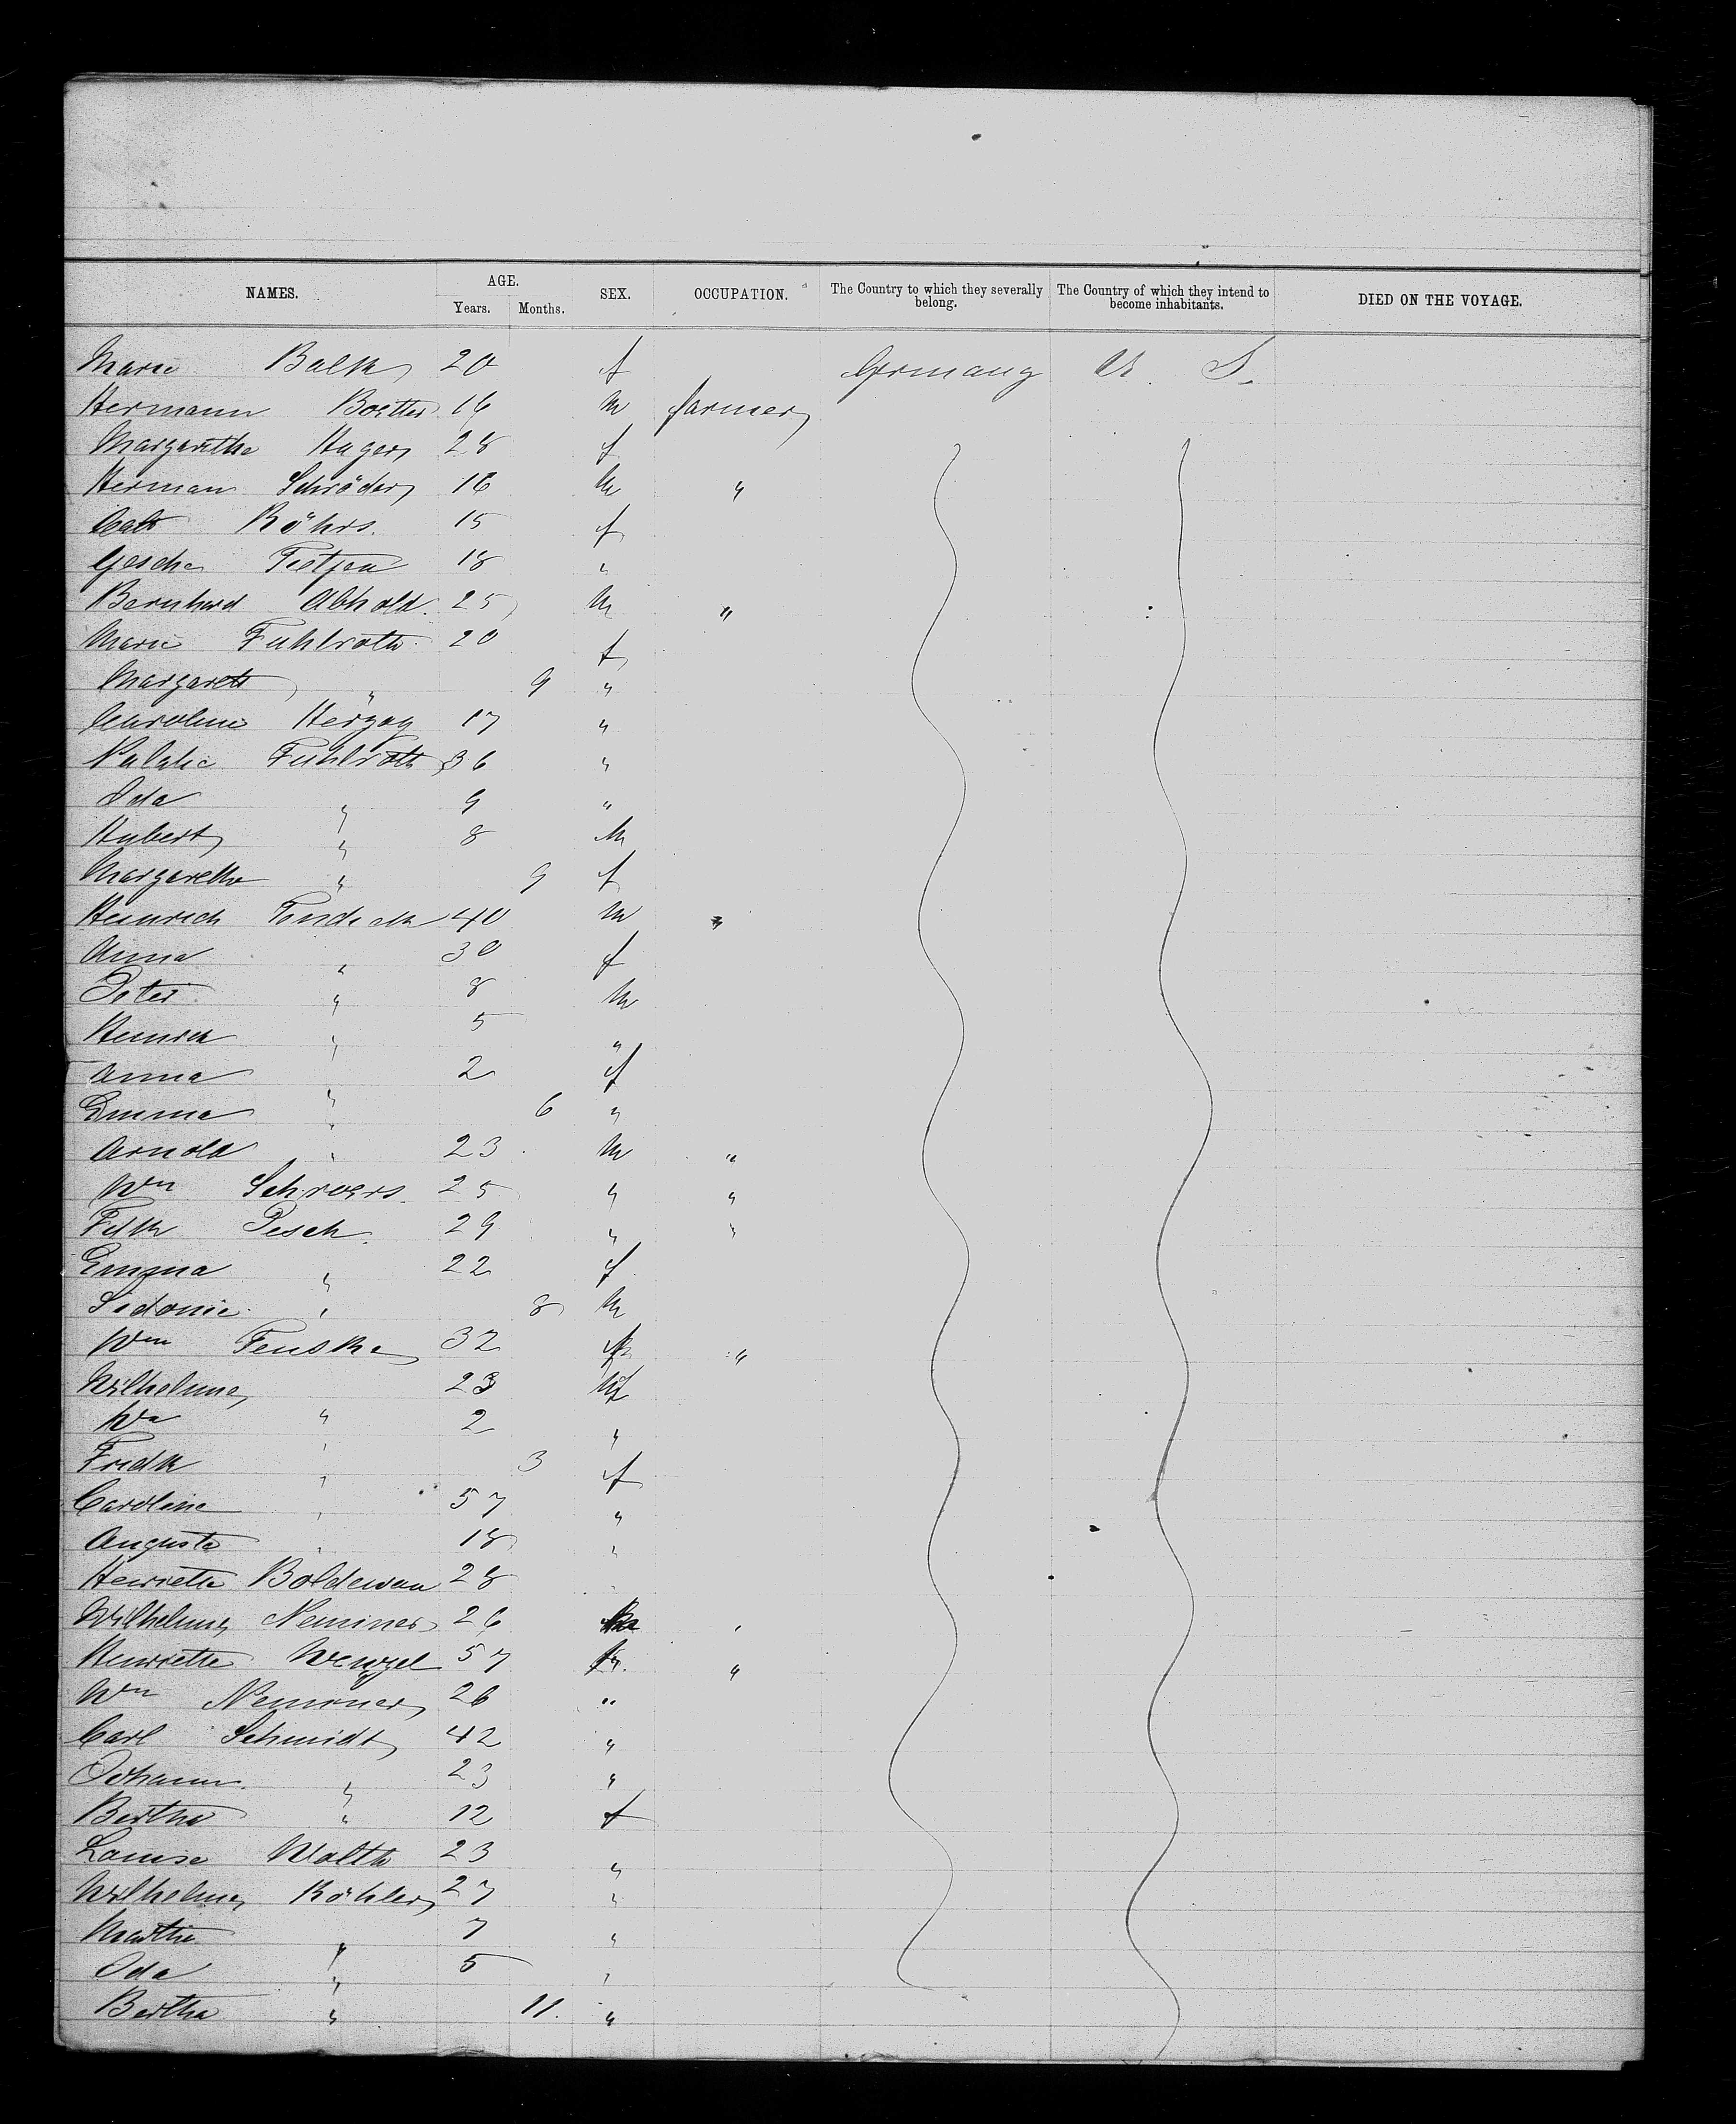 NAMES. AGE. Years. Months. SEX. OCCUPATION. The Country to which they severally belong. The Country of which they intend to become inhabitants. DIED ON THE VOYAGE.
Marie Balk 20 f Germany U. S.
Hermann 16 m farmer
Margarethe Hagen 28 f
Herman Schröder 16 m "
Röhrs. 15 f
Gesche Tietjen 18 "
Bernhard Abhold 25 m "
Marie Fuhlroth 20 f
Margareth " 9 "
Caroline Herzog 17 "
Natalie Fuhlroth 36 "
Ida " 9 "
Hubert " 8 m
Margaretha " 9 f
Heinrich 40 m "
Anna " 30 f
Peter " 8 m
Heinrich " 5 "
Anna " 2 f
Emma " 6 "
Arnold " 23 m "
Wm Schroers 25 " "
Fdk Pesch. 29 " "
Emma " 22 f
Sidonie " 8 m
Wm Fenske 32 "
Wilhelmine 23
Wm " 2 "
Fredk " 3 f
Caroline " 57 "
Auguste " 18 "
Henriette Boldewan 28
Wilhelmine Neminer 26 "
Henriette Wenzel 57 "
Wm Neminer 26 "
Carl Schmidt 42 "
Johann " 23 "
Bertha " 12 f
Louise Walth 23 "
Wilhelmine Köhler 27 "
Martha " 7 "
Ida " 5 "
Bertha " 11. "